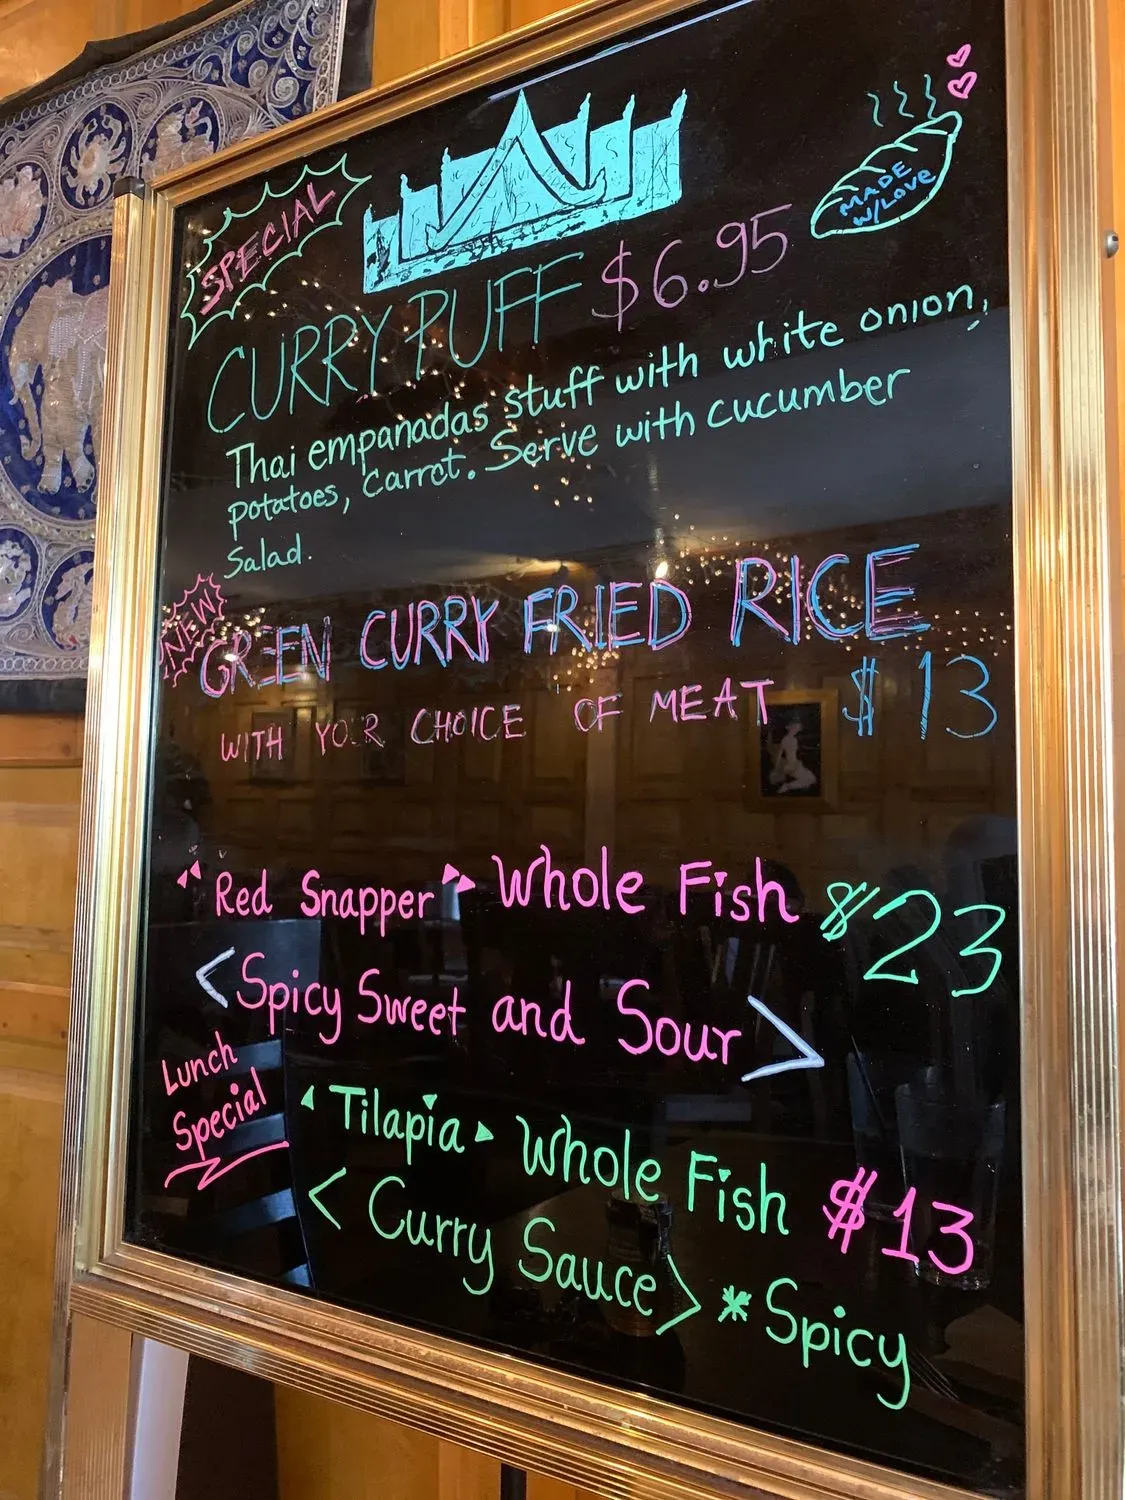 SPECIAL
MADE
W/LOVE
CURRY PUFF $6.95
Thai empanadas stuff with white onion,
potatoes, carrot. Serve with cucumber
Salad.
NEW
GREEN CURRY FRIED RICE
WITH YOUR CHOICE OF MEAT $13
"Red Snapper" Whole Fish $23
<Spicy Sweet and Sour>
Lunch
Special
"Tilapia" Whole Fish $13
<Curry Sauce> *Spicy